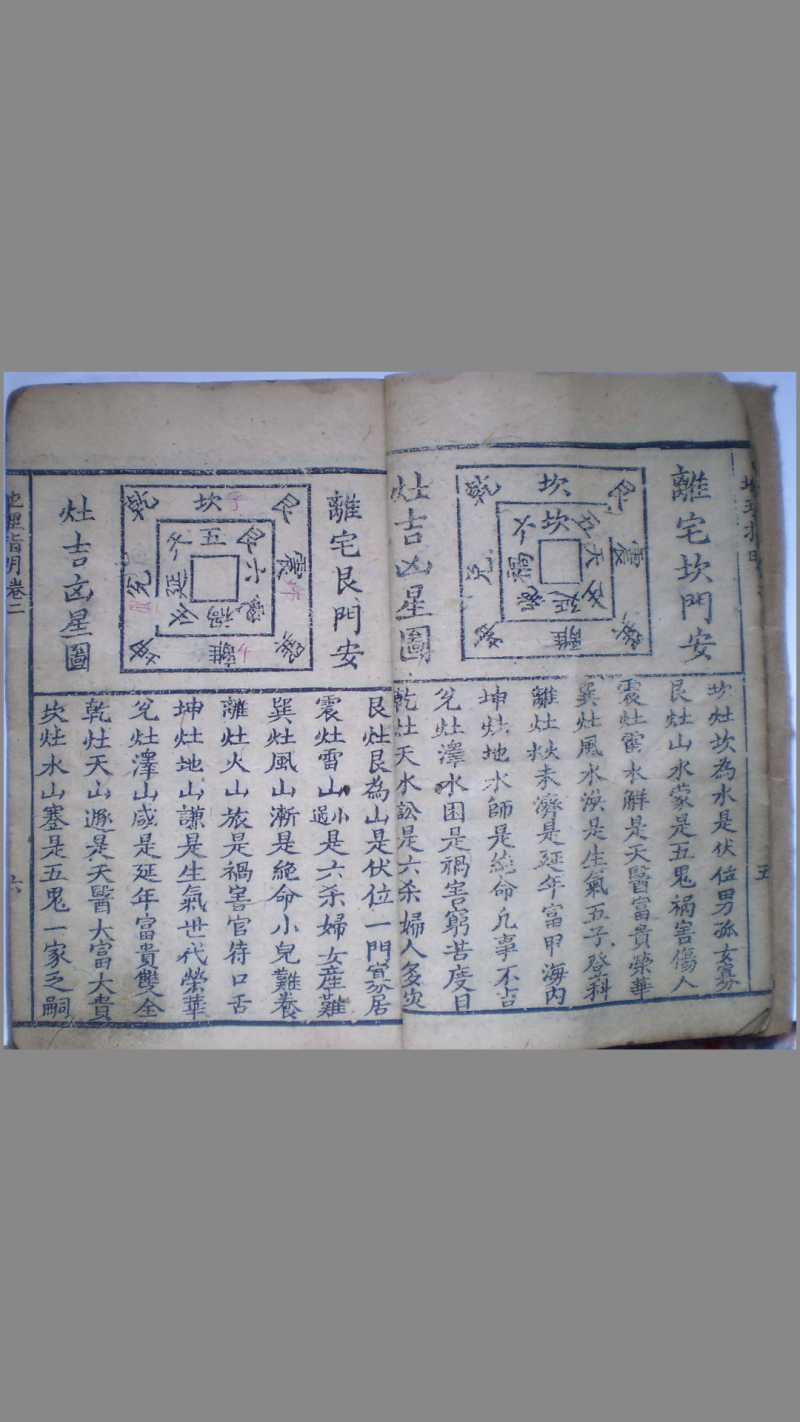 離宅坎門安
灶吉凶星圖
乾 坎 艮
兌 震
坤 離 巽
六 坎 五
禍 天
絕 延 生
坎灶坎為水是伏位男孤女寡
艮灶山水蒙是五鬼禍害傷人
震灶雷水觧是天醫富貴榮華
巽灶風水渙是生氣五子登科
離灶火水未濟是延年富甲海内
坤灶地水師是絶命凡事不吉
兌灶澤水困是禍害窮苦度日
乾灶天水訟是六杀婦人多災
五
離宅艮門安
灶吉凶星圖
乾 坎 子 艮
兌 酉 震
坤 離 午 巽
天 五 艮
延 六
生 禍 絕
艮灶艮為山是伏位一門寡居
震灶雷山小過是六杀婦女産難
巽灶風山漸是絶命小兒難養
離灶火山旅是禍害官符口舌
坤灶地山謙是生氣世代榮華
兌灶澤山咸是延年富貴雙全
乾灶天山遯是天醫大富大貴
坎灶水山蹇是五鬼一家乏嗣
地理指明卷二
六